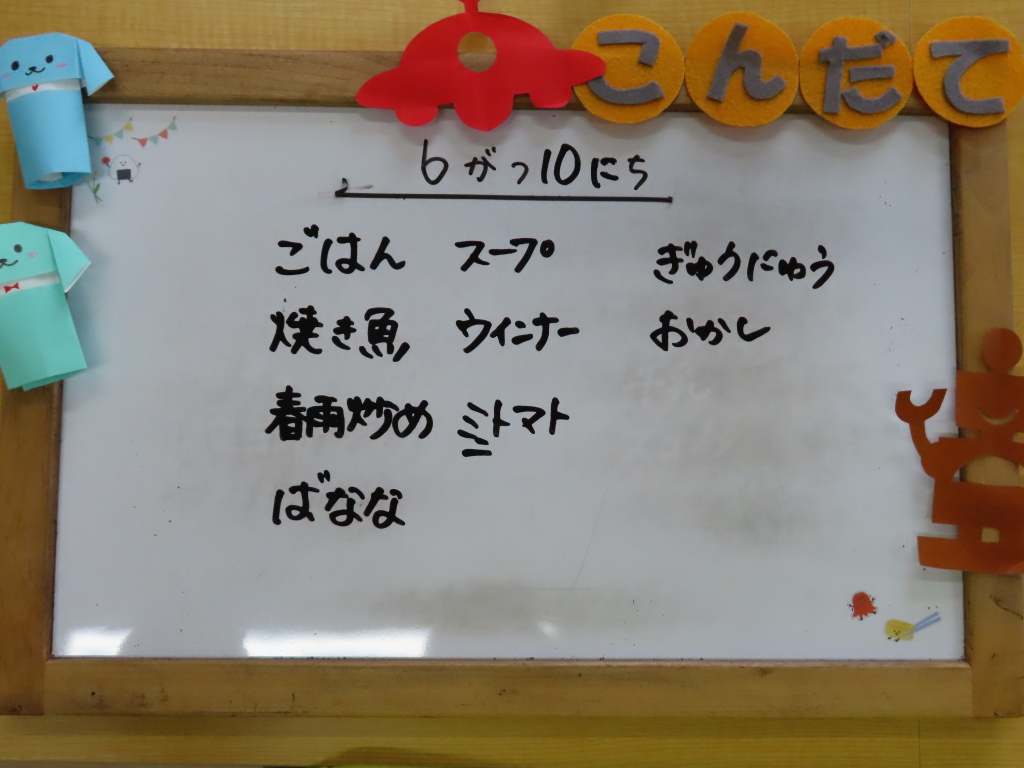 こんだて
6がつ10にち
ごはん スープ ぎゅうにゅう
焼き魚 ウインナー おかし
春雨炒め ミトマト
ばなな